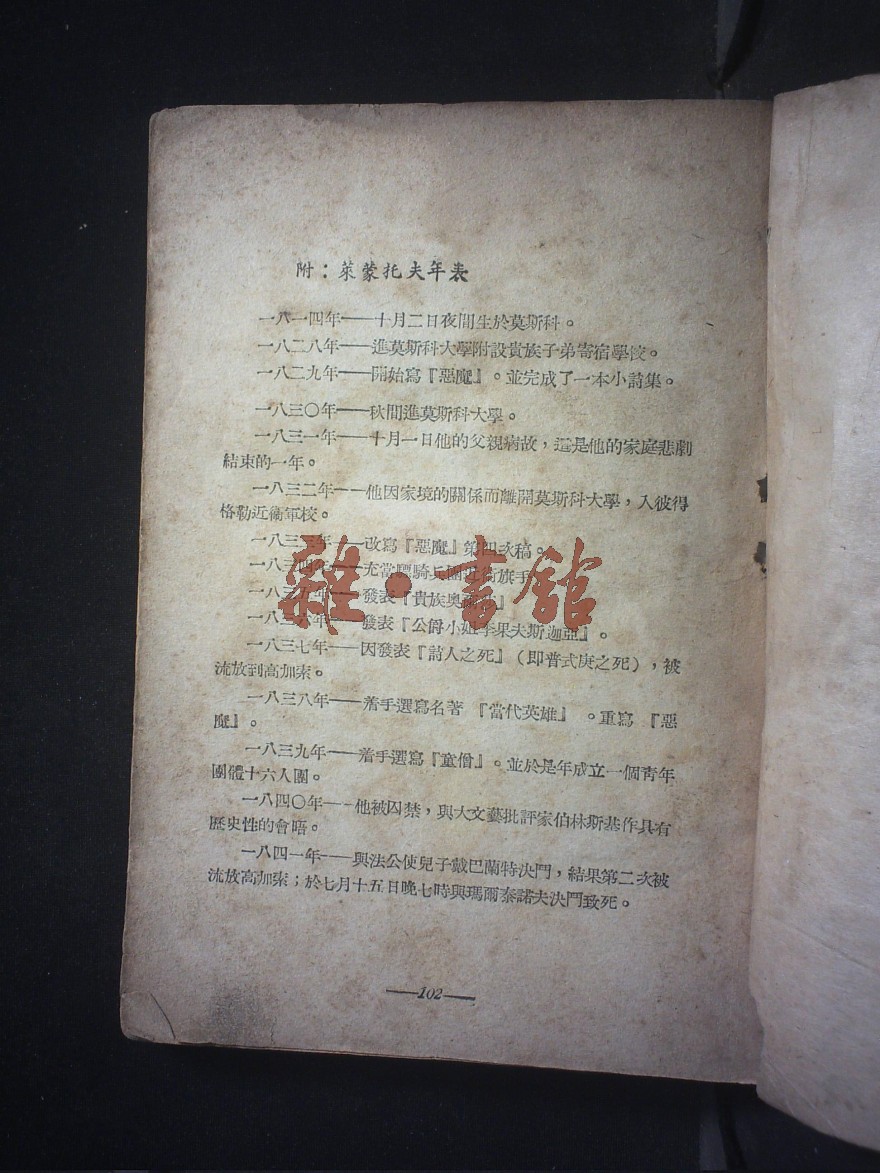 附：萊蒙托夫年表
一八一四年——十月二日夜間生於莫斯科。
一八二八年——進莫斯科大學附設貴族子弟寄宿學校。
一八二九年——開始寫『惡魔』。並完成了一本小詩集。
一八三〇年——秋間進莫斯科大學。
一八三一年——十月一日他的父親病故，這是他的家庭悲劇
結束的一年。
一八三二年——他因家境的關係而離開莫斯科大學，入彼得
格勒近衞軍校。
一八三三年——改寫『惡魔』第四次稿。
一八三四年——充當驃騎兵團近衞旗手
一八三五年——發表『貴族奧
一八三六年——發表『公爵小姐李果夫斯迦亞』。
一八三七年——因發表『詩人之死』（即普式庚之死），被
流放到高加索。
一八三八年——着手選寫名著『當代英雄』。重寫『惡
魔』。
一八三九年——着手選寫『童僧』。並於是年成立一個青年
團體十六人團。
一八四〇年——他被囚禁，與大文藝批評家伯林斯基作具有
歷史性的會晤。
一八四一年——與法公使兒子戴巴蘭特決鬥，結果第二次被
流放高加索；於七月十五日晚七時與瑪爾泰諾夫決鬥致死。
——102——
雜·書館